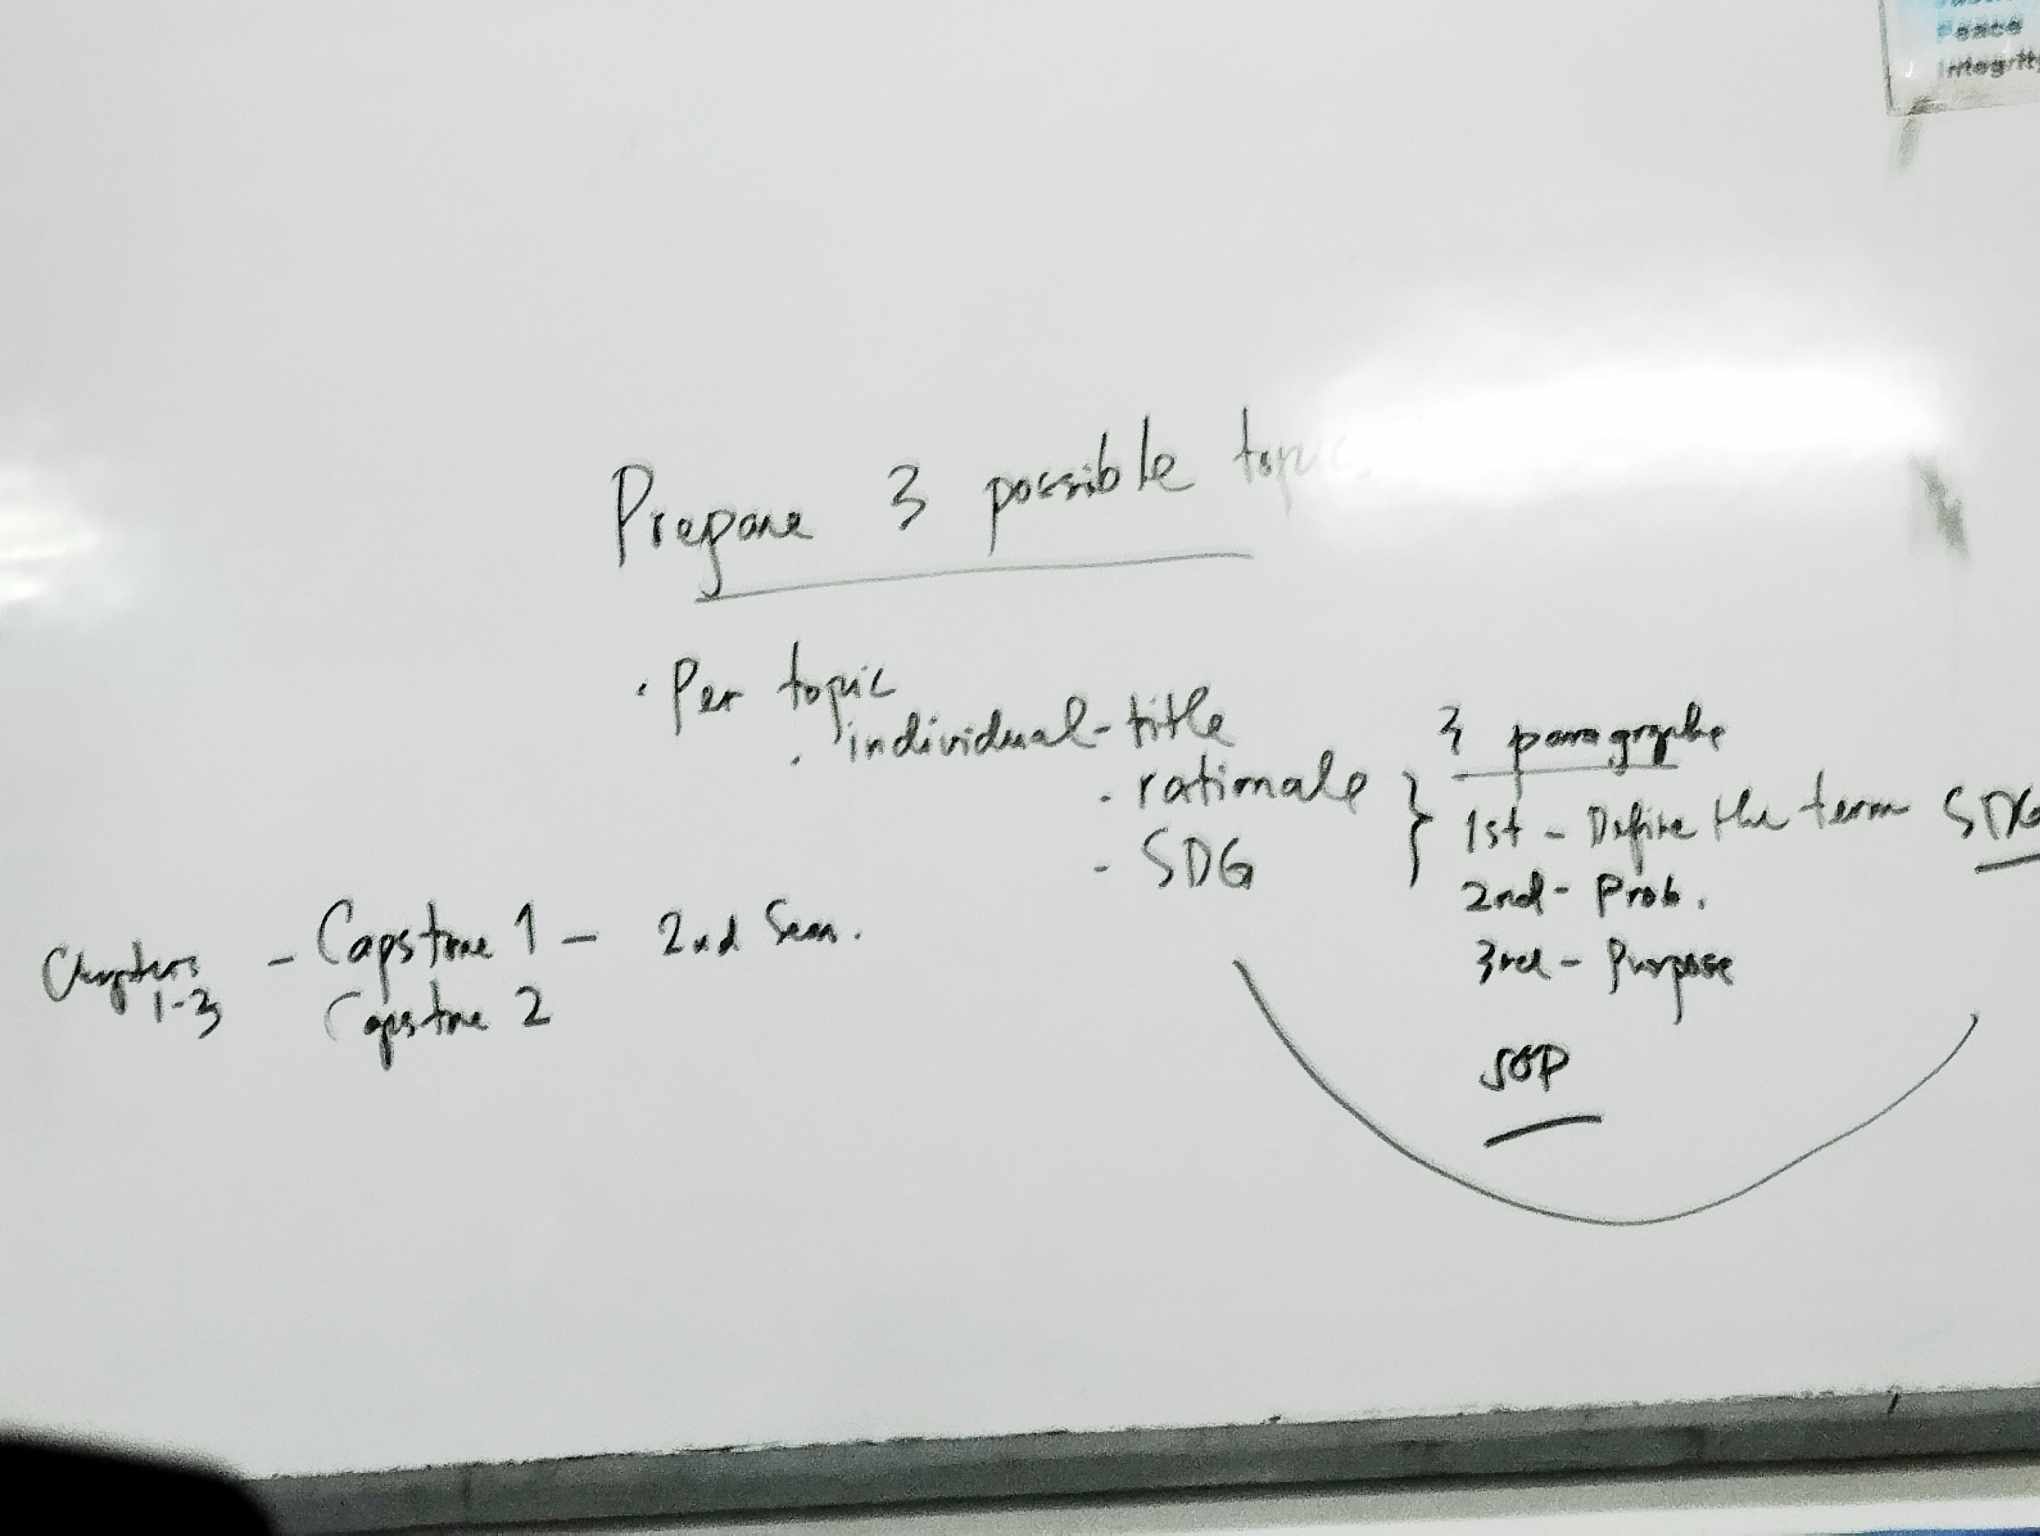 Peace
Integrity
Prepare 3 possible topic
· Per topic
· individual - title
- rationale
- SDG
3 paragraphs
1st - Define the term SDG
2nd - Prob.
3rd - Purpose
SOP
Chapters 1-3 - Capstone 1 - 2nd Sem.
Capstone 2